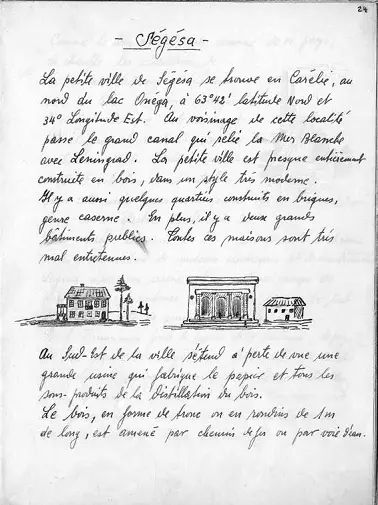 24
- Ségésa -
La petite ville de Ségésa se trouve en Carélie, au
nord du lac Onéga, à 63°42' latitude Nord et
34° Longitude Est. Au voisinage de cette localité
passe le grand canal qui relie la Mer Blanche
avec Leningrad. La petite ville est presque entièrement
construite en bois, dans un style très moderne.
Il y a aussi quelques quartiers construits en briques,
genre caserne. En plus, il y a deux grands
bâtiments publics. Toutes ces maisons sont très
mal entretenues.
Au Sud-Est de la ville s'étend à perte de vue une
grande usine qui fabrique le papier et tous les
sous-produits de la distillation du bois.
Le bois, en forme de tronc ou en rondins de 1m
de long, est amené par chemin de fer ou par voie d'eau.